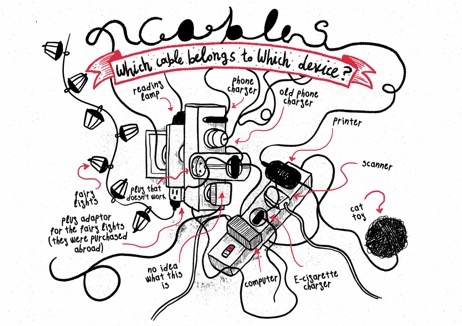 cables
Which cable belongs to which device?
reading
lamp
phone
charger
old phone
charger
printer
scanner
cat
toy
fairy
lights
plug that
doesn't work
plug adaptor
for the fairy lights
(they were purchased
abroad)
no idea
what this
is
computer
E-cigarette
charger